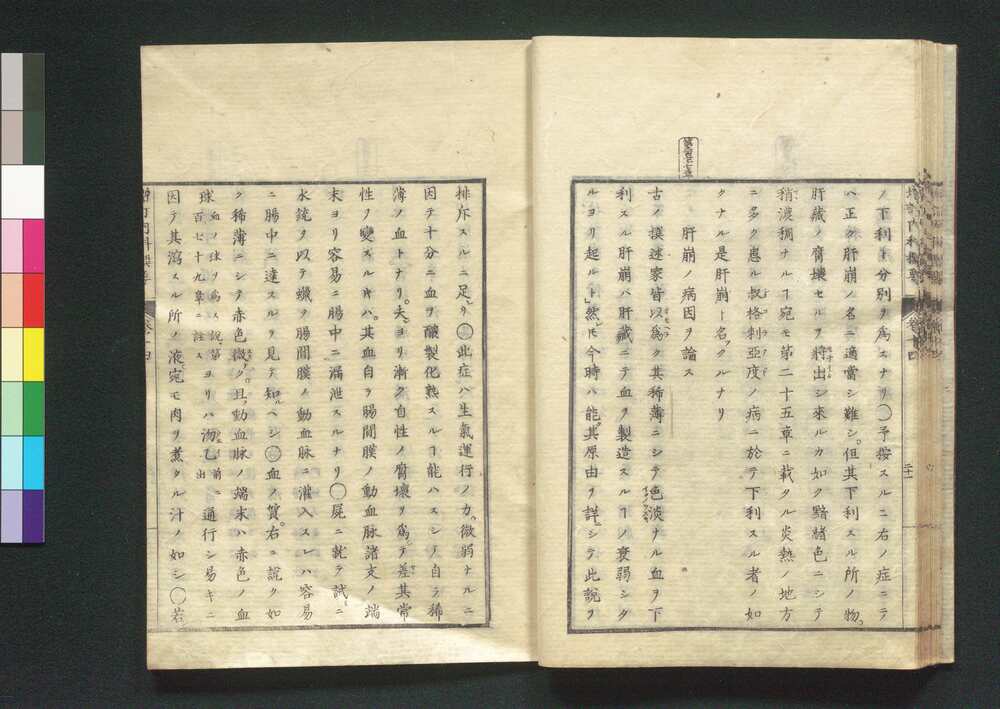 ノ下利ト分別ヲ爲スナリ〇予按スルニ右ノ症ニテ
ハ正ク肝崩ノ名ニ適當シ難シ但其下利スル所ノ物
肝藏ノ腐壞セルヲ將出シ來ルカ如ク黯赭色ニシテ
稍濃稠ナルヿ宛モ第二十五章ニ載タル炎熱ノ地方
ニ多ク患ル叔格利亞度ノ病ニ於テ下利スル者ノ如
クナル是肝崩ト名クルナリ
肝崩ノ病因ヲ論ス
古ノ撲速家皆以爲ク其稀薄ニシテ色淡ナル血ヲ下
利スル肝崩ハ肝藏ニテ血ヲ製造スルヿノ衰弱シタ
ルヨリ起ルト然𪜈今時ハ能其原由ヲ詳ニシテ此說ヲ
排斥スルニ足レリ
此症ハ生氣運行ノ力微弱ナルニ
因テ十分ニ血ヲ釀製化熟スルヿ能ハスシテ自ラ稀
薄ノ血トナリ夫ヨリ漸ク自性ノ腐壞ヲ爲シテ差其常
性ヲ變スル𪜈ハ其血自ラ腸間膜ノ動血脉諸支ノ端
末ヨリ容易ニ腸中ニ漏泄スルナリ〇屍ニ就テ試ニ
水銃ヲ以テ蠟ヲ腸間膜ノ動血脉ニ灌入スレハ容易
ニ腸中ニ達スルヲ見テ知ヘシ
血ノ質右ニ說ク如
ク稀薄ニシテ赤色微ク且動血脉ノ端末ハ赤色ノ血
球血ノ球ヲ爲ス說第百七十九章ニ註スヨリハ泻乙前ニ出通行シ易キニ
因テ其瀉スル所ノ液宛モ肉ヲ煮タル汁ノ如シ〇若